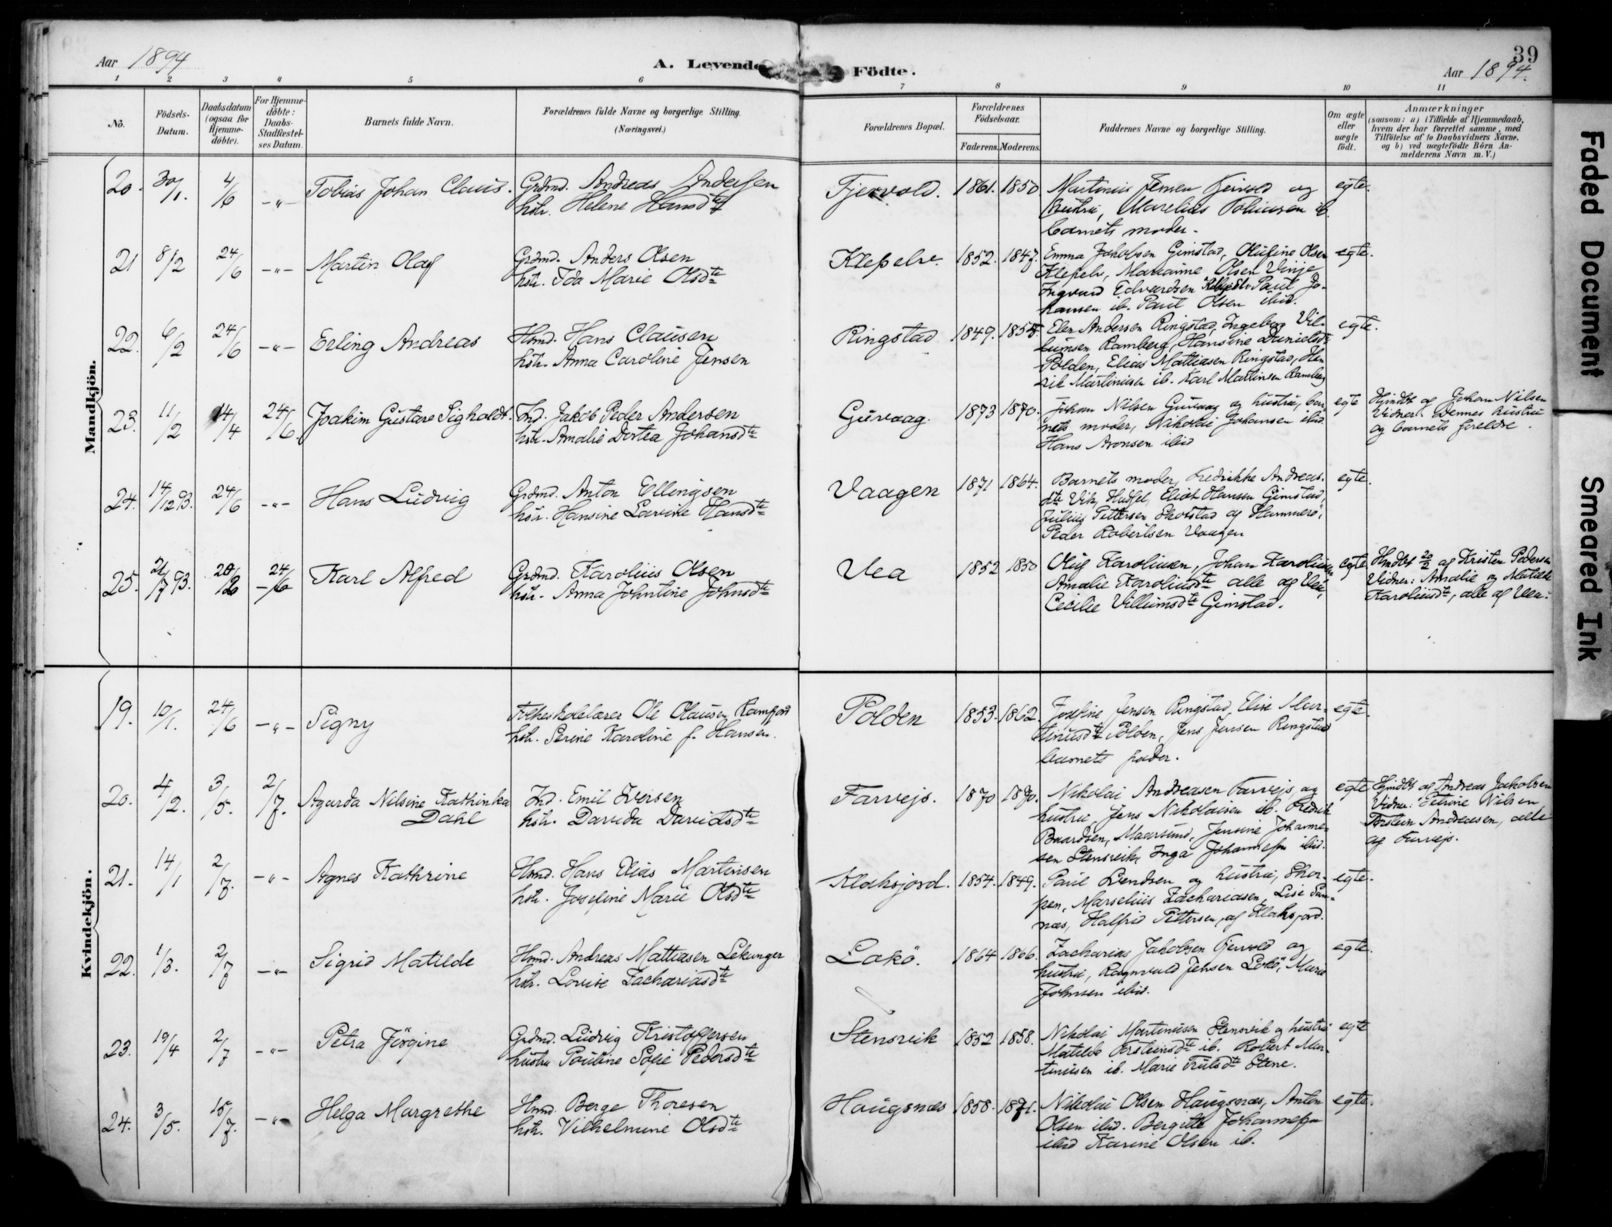 Aar 1894
A. Levende Födte.
39
Aar 1894.
1 2 3 4 5 6 7 8 9 10 11
No.
Födsels-
Datum.
Daabsdatum
(ogsaa for
Hjemme-
döbte).
For Hjemme-
döbte:
Daabs-
Stadfæstel-
ses Datum.
Barnets fulde Navn.
Forældrenes fulde Navne og borgerlige Stilling.
(Næringsvei.)
Forældrenes Bopæl.
Forældrenes
Födselsaar.
Faderens. Moderens.
Faddernes Navne og borgerlige Stilling.
Om ægte
eller
uægte
födt.
Anmærkninger
(saasom: a) i Tilfælde af Hjemmedaab,
hvem der har forrettet samme, med
Tilföielse af to Daabsvidners Navne,
og b) ved uægtefödte Börn An-
melderens Navn m.V.)
Mandkjön.
20. 30/1. 4/6 -"- Tobias Johan Claus. Grdmd. Andreas Andersen
hstr. Helene Hansdtr
Fjervold. 1861. 1850
Martinus Jensen Fjervold og
hustru, Marelius Tobiassen ib.
barnets moder.
egte.
21 8/2 24/6 -"- Martin Olaf
Grdmd. Anders Olsen
hstr. Ida Marie Olsdtr
Klepelv. 1852. 1847.
Emma Jakobsen Gimstad, Olufine Olsen
Klepelv, Marianne Olsen Vinje
Ingvard Edvardsen Klepelv Paul Jo-
hansen ib. Paul Olsen ibid.
egte.
22. 6/2 24/6 -"- Erling Andreas
Hmd. Hans Clausen
hstr. Anna Caroline Jensen
Ringstad 1849. 1855
Elen Andersen Ringstad, Ingeborg Vil-
lumsen Ramberg, Hansine Danielsdtr
Polden, Elias Mattiasen Ringstad, Hen
rik Martinusen ib. Karl Martinsen Ramberg
egte.
23. 11/2 14/4 24/6 Joakim Gustave Sigholdt.
Ind. Jakob Peder Andersen
hstr. Amalie Dortea Johansdtr
Guvaag. 1873 1870.
Johan Nilsen Guvaag og hustru, bar
nets moder, Nikolai Johansen ibid.
Hans Aronsen ibid
egte
Hjmdbt af Johan Nilsen
Vidner: Dennes hustru
og barnets forældre.
24. 14/12 93. 24/6 -"- Hans Ludvig
Grdmd. Anton Ellingsen
hstr. Hansine Lavine Hansdtr
Vaagen 1871 1864.
Barnets moder, Fredrikke Andreas-
dtr Vik, Eliot Hansen Gimstad,
Julius Pettersen Skotstad og Hammerö,
Peder Robertsen Vaagen
egte.
25. 21/7 93. 20/2 24/6 Karl Alfred
Grdmd. Karolius Olsen
hstr. Anna Johntine Johnsdtr
Vea 1852 1850
Oluf Karoliusen, Johan Karoliusen
Amalie Karoliusdtr alle af Vea,
Cecilie Villumsdtr Gimstad.
egte
Hmdbt 20/2 af Kristen Pedersen
Vidner: Amalie og Matilde
Karoliusdtr, alle af Vea.
Kvindekjön.
19. 10/1. 24/6 -"- Signy
Folkeskolelærer Ole Olausen Ramfjord
hstr. Serine Karoline f. Hansen.
Polden 1853. 1862
Josefine Jensen Ringstad, Elise Mar-
tinusdtr Polden, Jens Jensen Ringstad
barnets fader.
egte.
20. 4/2. 3/5. 2/7. Agarda Nilsine Kathinka
Dahl
Ind. Emil Iversen
hstr. Davida Davidsdtr
Farvejs. 1870 1870.
Nikolai Andreasen Farvejs og
hustru Jens Nikolaisen ib. Fredrik
Baardsen, Maarsund, Jensine Johanne-
sen Stensvik, Inga Johannesen ibid.
egte
Hjmdbt af Andreas Jakobsen
Vidner: Petrine Nilsen
Torstein Andreasen, alle
af Farvejs.
21. 14/1 2/7. -"- Agnes Kathrine
Hmd. Hans Elias Martinsen
hstr. Josefine Marie Olsdtr
Klaksjord. 1854. 1849.
Paul Bendsen og hustru, Thor-
Marselius Zachariasen Lise San-
næs, Halfrid Pettersen, af Klaksjord.
egte.
22. 1/3. 2/7 -"- Sigrid Matilde
Hmd. Andreas Mattiasen Lekanger
hstr. Lovise Zachariasdtr
Lokö. 1864 1866.
Zacharias Jakobsen Fjervold og
hustru, Ragnvald Jensen Lokö, Marie
Johnsen ibid.
egte.
23. 19/4 2/7 -"- Petra Jörgine
Grdmd. Ludvig Kristoffersen
hustru Pauline Sofie Pedersdtr
Stensvik 1852 1858.
Nikolai Martinusen Stensvik og hustru
Matilde Torsteinsdtr ib. Robert Mar-
tinusen ib. Marie Trulsdtr Stene.
egte
24. 3/5. 15/7. -"- Helga Margrethe
Hmd. Berge Thoresen
hstr. Vilhelmine Olsdtr
Haugsnæs 1858. 1871.
Nikolai Olsen Haugsnæs, Anton
Olsen ibid. Bergitte Johannesen
ibid Karine Olsen ib.
egte.
Faded Document
Smeared Ink